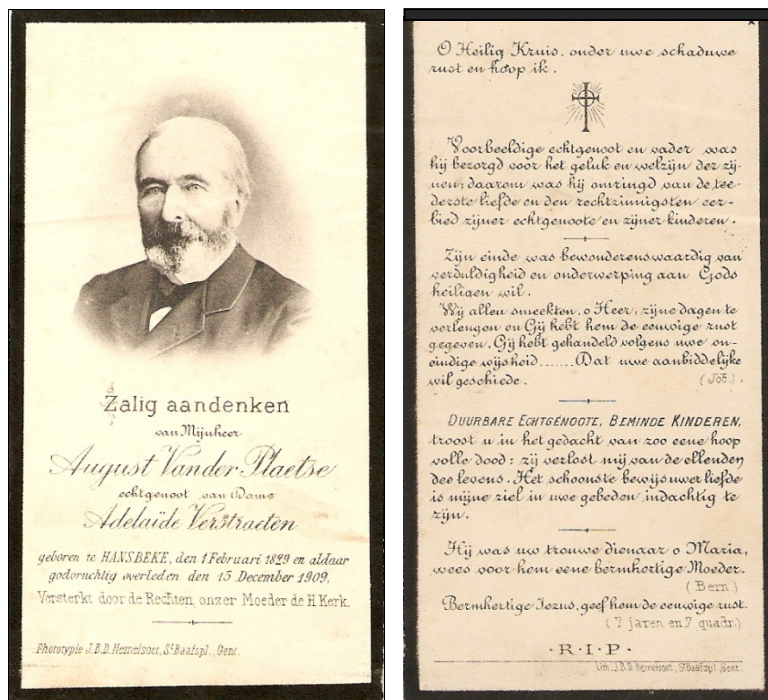 Zalig aandenken
van Mijnheer
August Vander Plaetse
echtgenoot van Dame
Adelaïde Verstraeten
geboren te HANSBEKE, den 1 Februari 1829 en aldaar
godvruchtig overleden den 15 December 1909.
Versterkt door de Rechten onzer Moeder de H. Kerk.
Phototypie J.B.D. Hemelsoet, St Baafspl., Gent.
O Heilig Kruis, onder uwe schaduwe
rust en hoop ik.
Voorbeeldige echtgenoot en vader was
hij bezorgd voor het geluk en welzijn der zij-
nen; daarom was hij omringd van de tee-
derste liefde en den rechtzinnigsten eer-
bied zijner echtgenoote en zijner kinderen.
Zijn einde was bewonderenswaardig van
verduldigheid en onderwerping aan Gods
heiligen wil.
Wij allen smeekten, o Heer, zijne dagen te
verlengen en Gij hebt hem de eeuwige rust
gegeven. Gij hebt gehandeld volgens uwe on-
eindige wijsheid....... Dat uwe aanbiddelijke
wil geschiede. (Job.).
DUURBARE ECHTGENOOTE, BEMINDE KINDEREN,
troost u in het gedacht van zoo eene hoop
volle dood: zij verlost mij van de ellenden
des levens. Het schoonste bewijs uwer liefde
is mijne ziel in uwe gebeden indachtig te
zijn.
Hij was uw trouwe dienaar o Maria,
wees voor hem eene bermhertige Moeder.
(Bern.)
Bermhertige Jezus, geef hem de eeuwige rust.
(7 jaren en 7 quadr.)
·R·I·P·
Lith. J.B.D. Hemelsoet, St Baafspl., Gent.